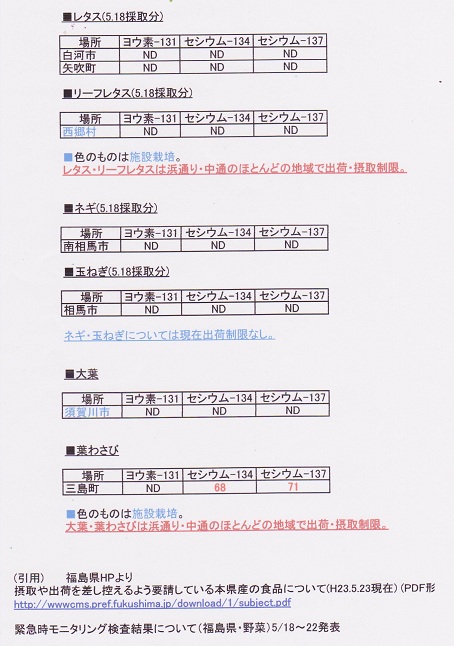 ■レタス(5.18採取分)
場所 ヨウ素-131 セシウム-134 セシウム-137
白河市 ND ND ND
矢吹町 ND ND ND
■リーフレタス(5.18採取分)
場所 ヨウ素-131 セシウム-134 セシウム-137
西郷村 ND ND ND
■色のものは施設栽培。
レタス・リーフレタスは浜通り・中通のほとんどの地域で出荷・摂取制限。
■ネギ(5.18採取分)
場所 ヨウ素-131 セシウム-134 セシウム-137
南相馬市 ND ND ND
■玉ねぎ(5.18採取分)
場所 ヨウ素-131 セシウム-134 セシウム-137
相馬市 ND ND ND
ネギ・玉ねぎについては現在出荷制限なし。
■大葉
場所 ヨウ素-131 セシウム-134 セシウム-137
須賀川市 ND ND ND
■葉わさび
場所 ヨウ素-131 セシウム-134 セシウム-137
三島町 ND 68 71
■色のものは施設栽培。
大葉・葉わさびは浜通り・中通のほとんどの地域で出荷・摂取制限。
(引用) 福島県HPより
摂取や出荷を差し控えるよう要請している本県産の食品について(H23.5.23現在) (PDF形
http://wwwcms.pref.fukushima.jp/download/1/subject.pdf
緊急時モニタリング検査結果について(福島県・野菜)5/18～22発表